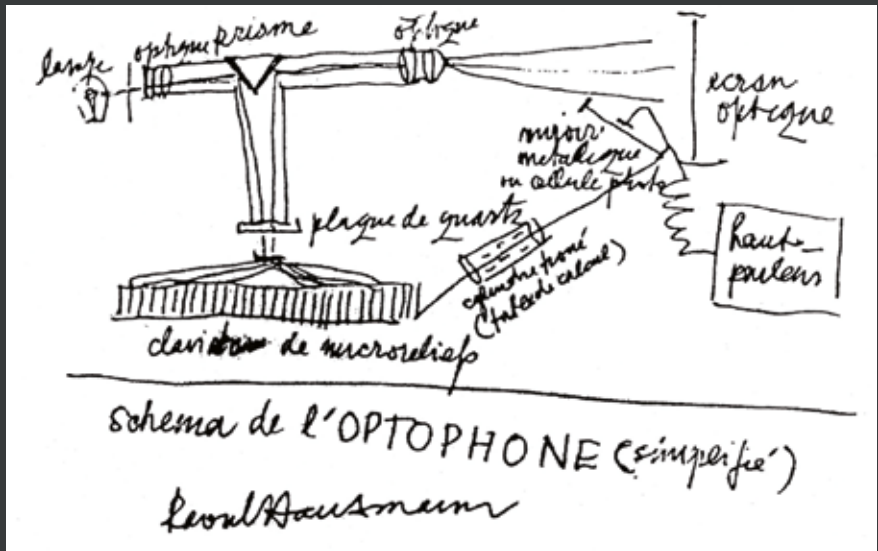 lampe
optique prisme
optique
ecran
optique
miroir
metalique
ou cellule photo
plaque de quartz
haut-
parleur
cylindre troué
(table de calcul)
de microreliefs
schema de l'OPTOPHONE (simplifié)
Raoul Hausmann